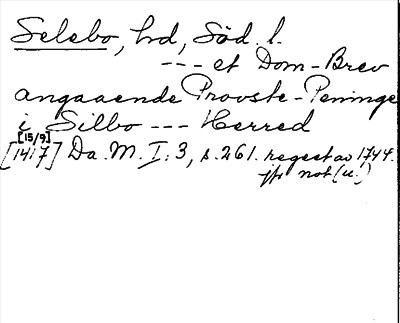 Selebo, hd, Söd. l.
--- et Dom-Brev
angaaende Provste-Peninge
i Silbo --- Herred
[15/9]
[1417] Da. M. I: 3, s. 261. regest av 1744.
jfr not (u.)